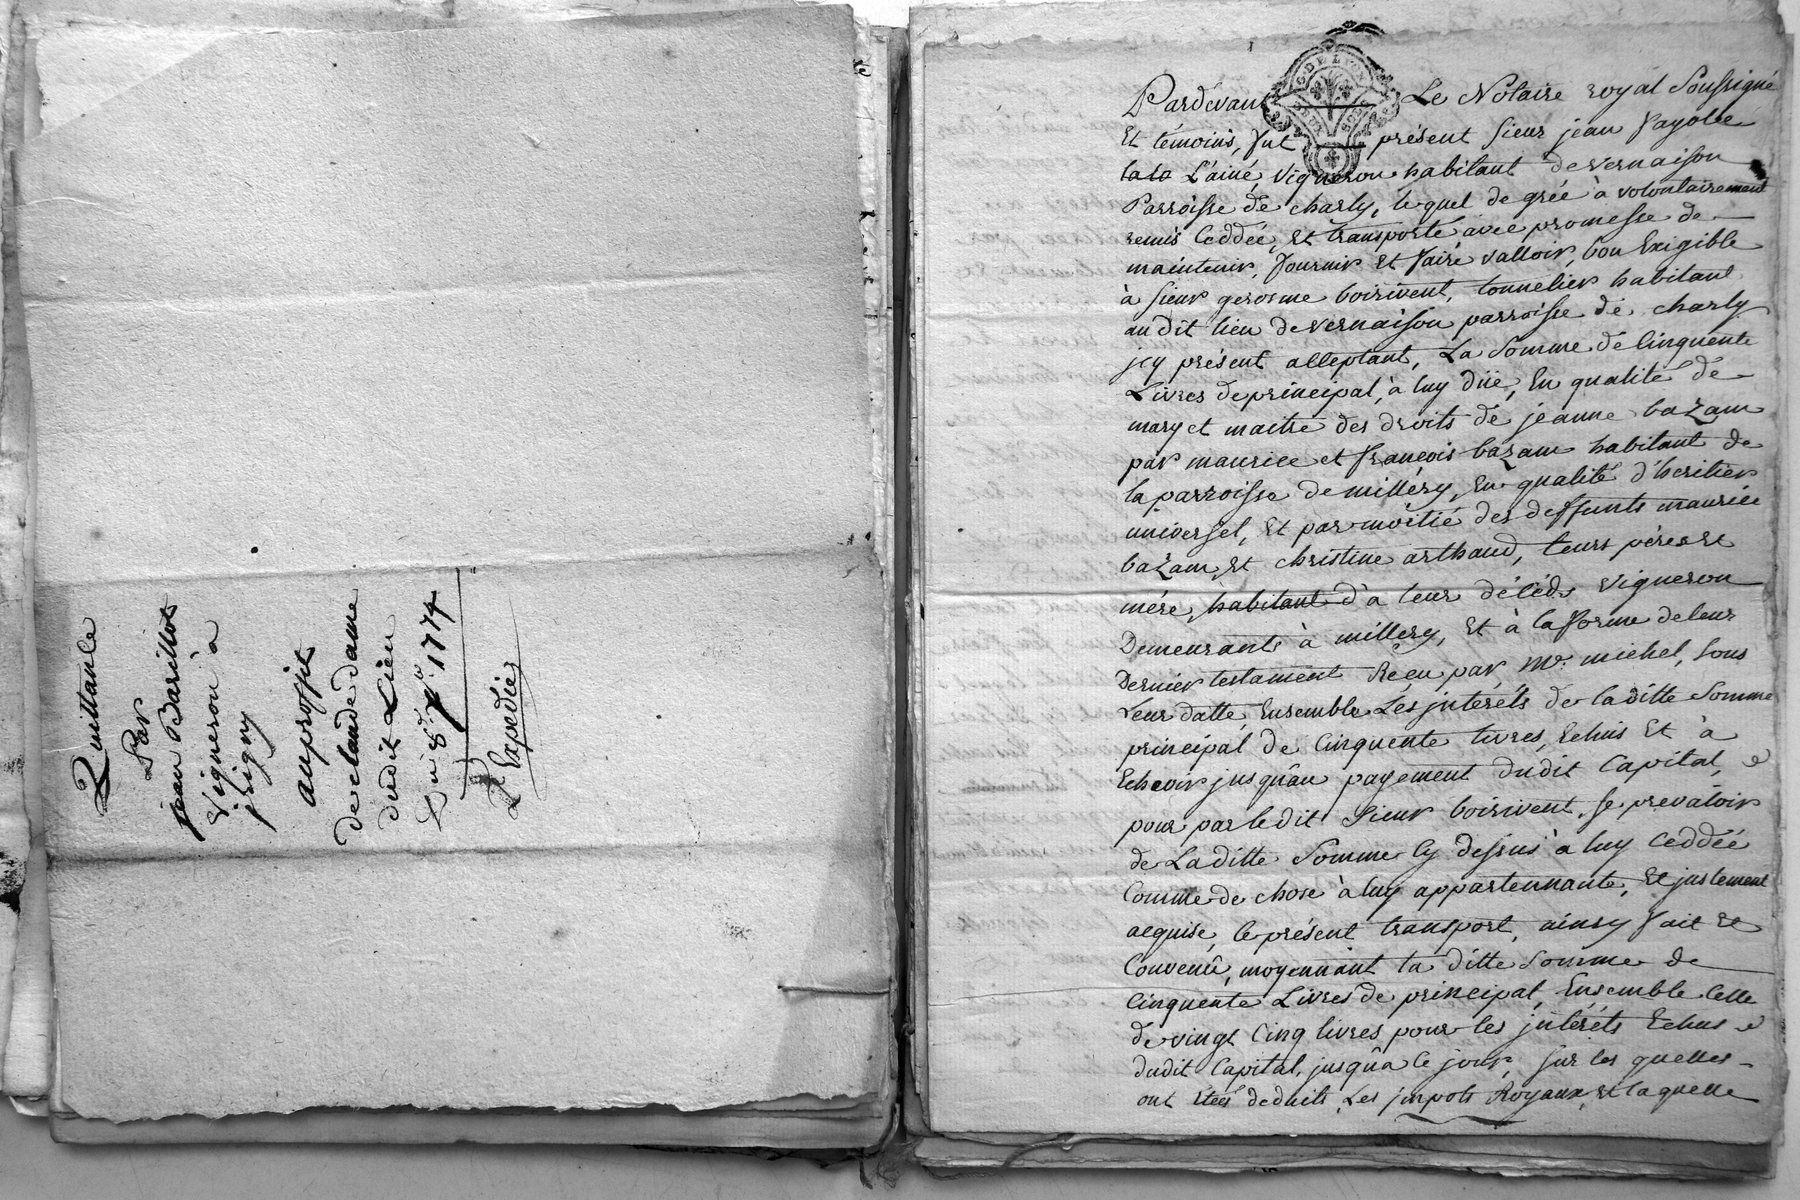 Quittance
Par
jean Barillot
Vigneron à
jrigny
au proffit
de claude dame
dudit Lieu
Du 8.e 1774
Expediée
G. DE LYON
DEUX SOLS
Pardevant Le Notaire royal Soussigné
Et témoins, fut présent sieur jean fayolle
L'ainé, vigneron habitant de vernaison
Parroisse de charly, lequel de grée à volontairement
remis Ceddée, et transporté avec promesse de
maintenir, fournir et faire valloir, bon Exigible
à sieur gerosme boirivent, tonnelier habitant
au dit lieu de vernaison parroisse de charly
jcy présent acceptant, La Somme de Cinquente
Livres de principal, à luy düe, En qualité de
mary et maitre des droits de jeanne bazam
par maurice et françois bazam habitant de
la parroisse de millery, En qualité d'heritier
universel, et par moitié des deffunts maurice
bazam et christine arthaud, leurs pères et
mére, habitant d'a leur décéds vigneron
Demeurants à millery, et à la forme de leur
Dernier testament Reçeu par, Mr. michel, sous
Leur datte, Ensemble Les jntérêts de la ditte Somme
principal de Cinquente livres, Echus et à
Echeoir jusqu'au payement dudit Capital,
pour par ledit Sieur boirivent, se prevaloir
de La ditte Somme Cy dessus à luy Ceddée
Comme de chose à luy appartennante, Et justement
acquise, le présent transport, ainsy fait et
Convenû, moyennant la ditte Somme de
Cinquente Livres de principal, Ensemble Celle
de vingt Cinq livres pour les jntérêts Echus
dudit Capital, jusqu'a ce jour, sur les quelles
ont étées deduits, Les jmpots Royaux, et laquelle